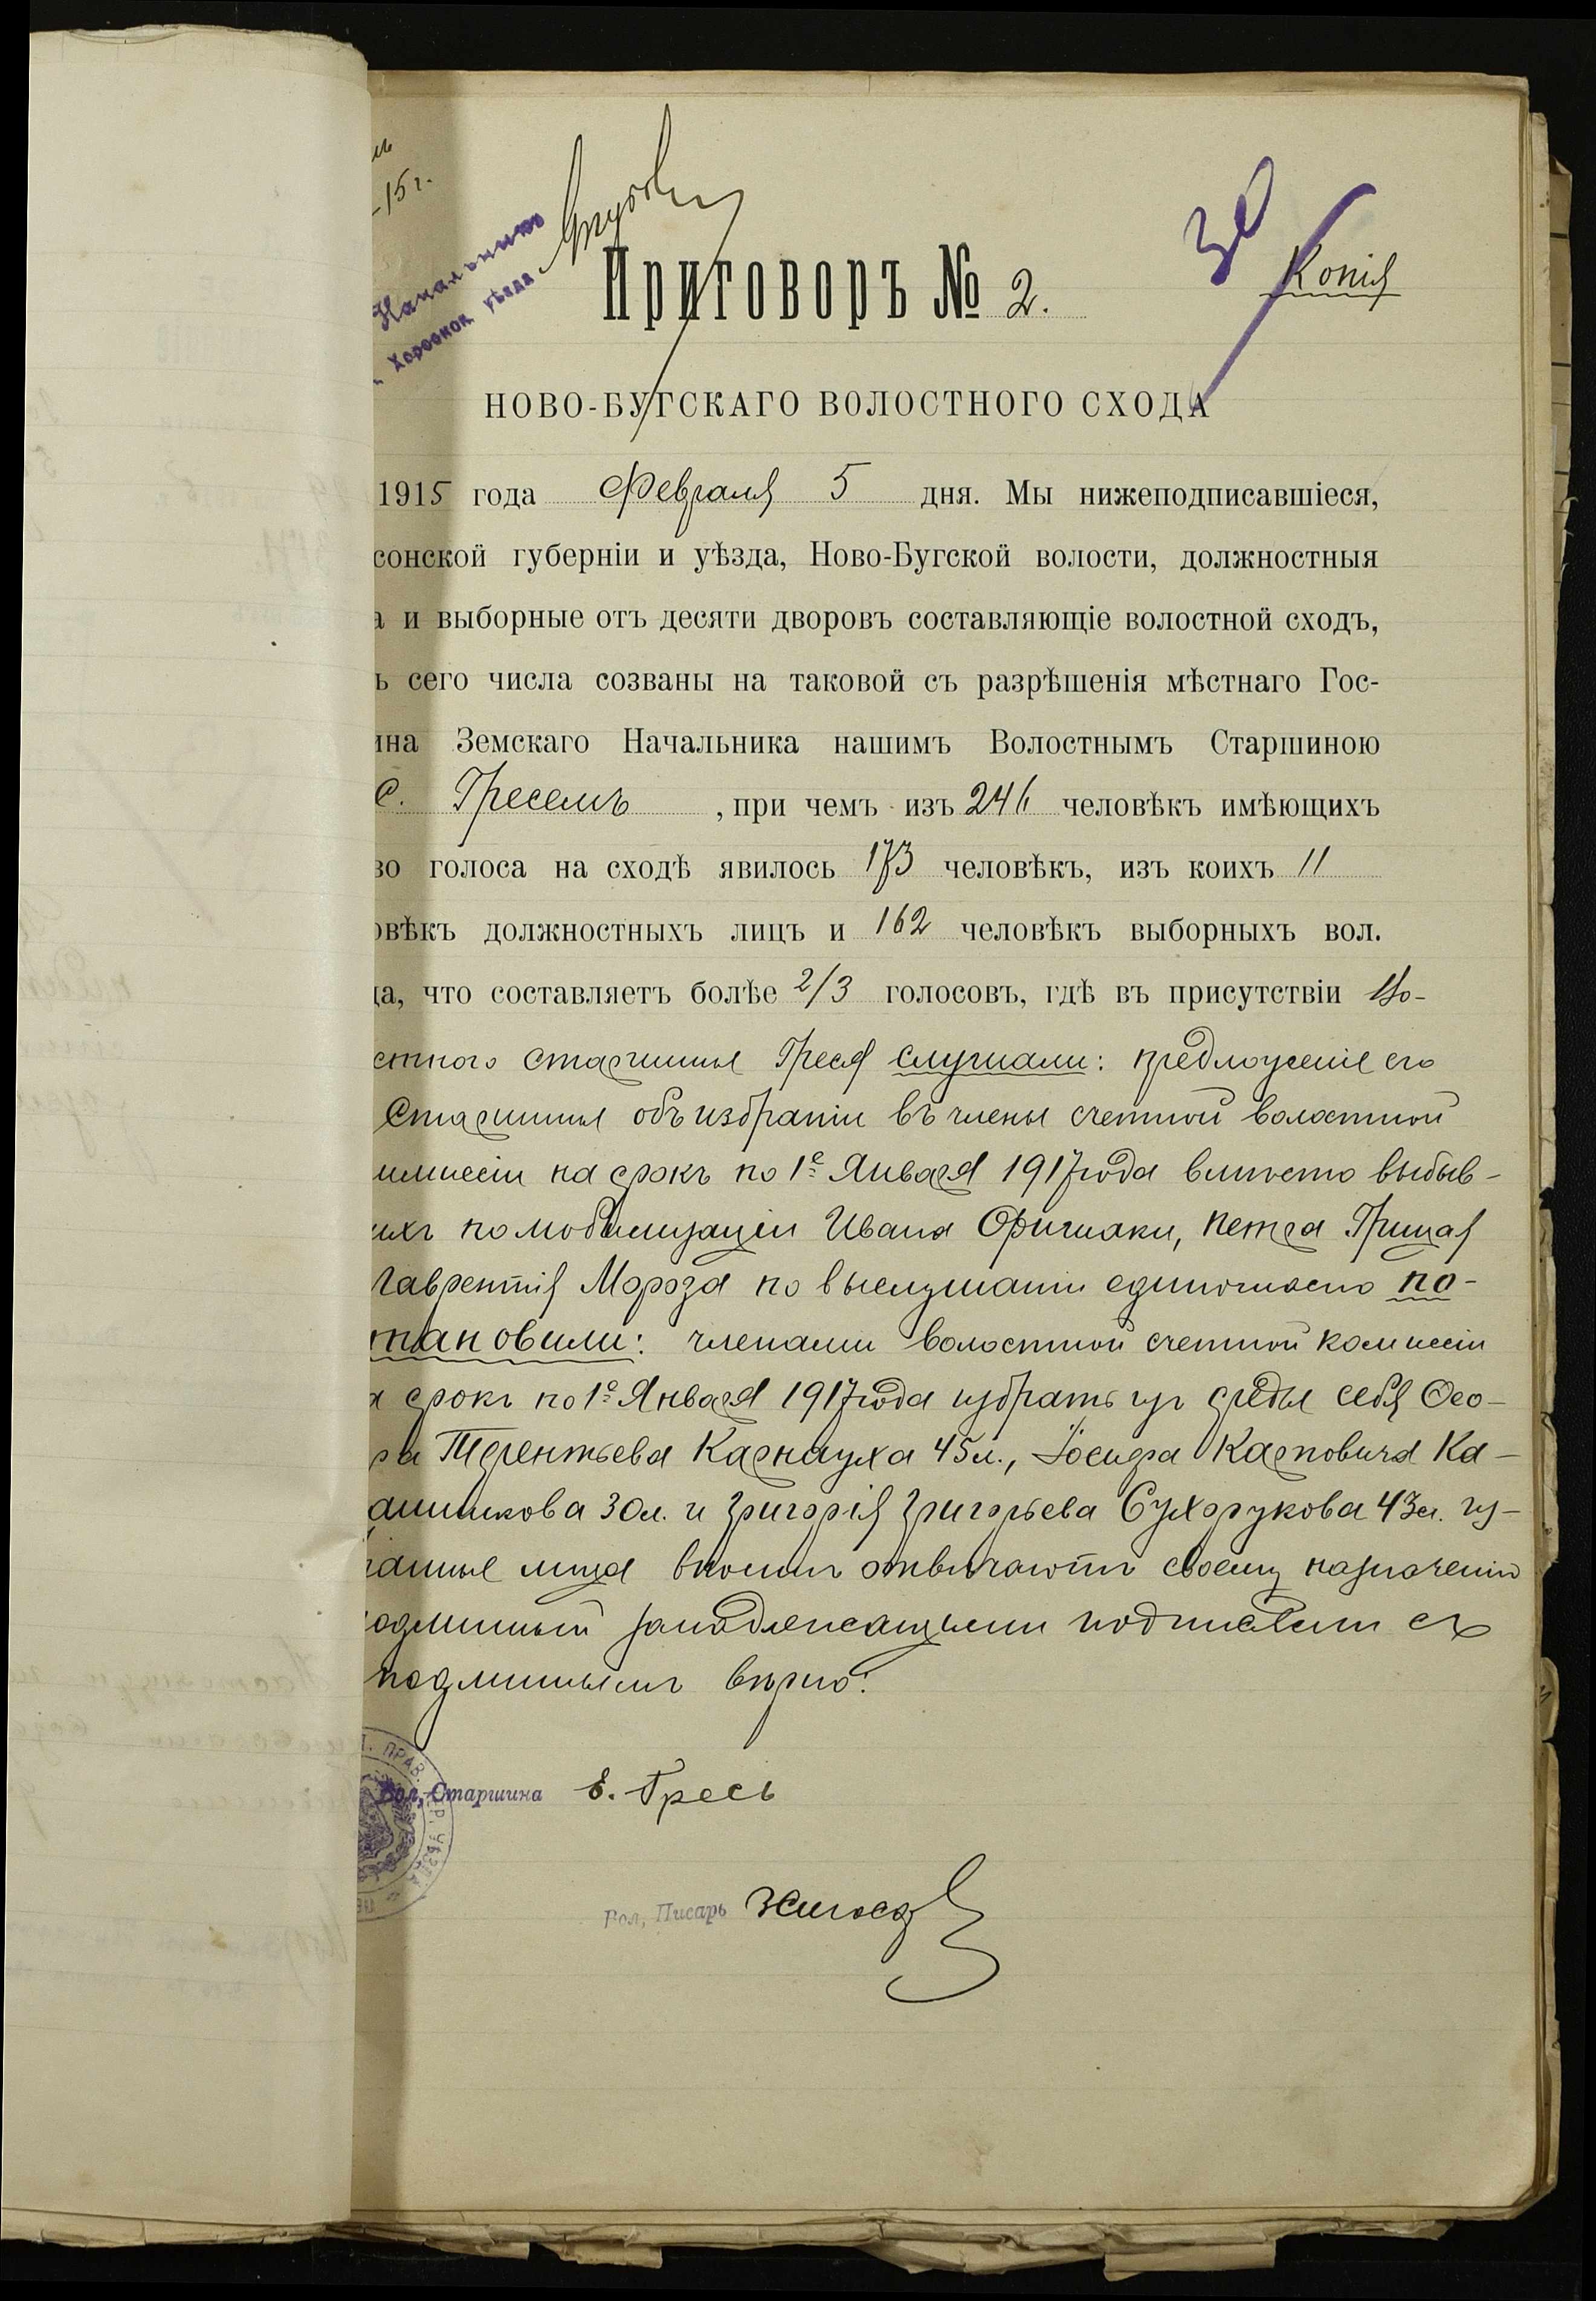 -15 г.
Начальнику
Херсонск уѣзда
Приговоръ № 2.
Копія
НОВО-БУГСКАГО ВОЛОСТНОГО СХОДА
1915 года Февраля 5 дня. Мы нижеподписавшіеся,
сонской губерніи и уѣзда, Ново-Бугской волости, должностныя
а и выборные отъ десяти дворовъ составляющіе волостной сходъ,
ь сего числа созваны на таковой съ разрѣшенія мѣстнаго Гос-
ина Земскаго Начальника нашимъ Волостнымъ Старшиною
С. Гресемъ, при чемъ изъ 246 человѣкъ имѣющихъ
во голоса на сходѣ явилось 173 человѣкъ, изъ коихъ 11
овѣкъ должностныхъ лицъ и 162 человѣкъ выборныхъ вол.
да, что составляетъ болѣе 2/3 голосовъ, гдѣ въ присутствіи Во-
стного старшины Греся слушали: предложеніе его
Старшины объ избраніи въ члены счетной волостной
миссіи на срокъ по 1е Января 1917 года вмѣсто выбыв-
ихъ по мобилизаціи Ивана Петра Грицая
Лаврентія Мороза по выслушаніи единогласно по-
тановили: членами волостной счетной комиссіи
а срокъ по 1е Января 1917 года избрать изъ среды себя Ѳео-
ра Терентьева Карнауха 45 л., Іосифа Карповича Ка-
ашникова 30 л. и Григорія Григорьева Сухорукова 43 л. из-
ранные лица вполнѣ отвѣчаютъ своему назначенію
одлинный за надлежащими подписями съ
подлиннымъ вѣрно:
Вол, Старшина Е. Гресь
Вол, Писарь